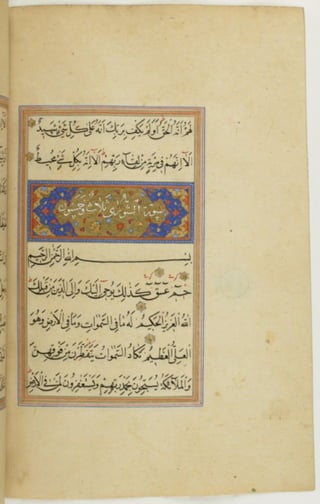 لهم أنه الحق أولم يكف بربك أنه على كل شيء شهيد
ألا إنهم في مرية من لقاء ربهم ألا إنه بكل شيء محيط
سورة الشورى ثلاث وخمسون
بسم الله الرحمن الرحيم
حم عسق كذلك يوحي إليك وإلى الذين من قبلك
الله العزيز الحكيم له ما في السموات وما في الأرض وهو
العلي العظيم تكاد السموات يتفطرن من فوقهن
والملائكة يسبحون بحمد ربهم ويستغفرون لمن في الأرض